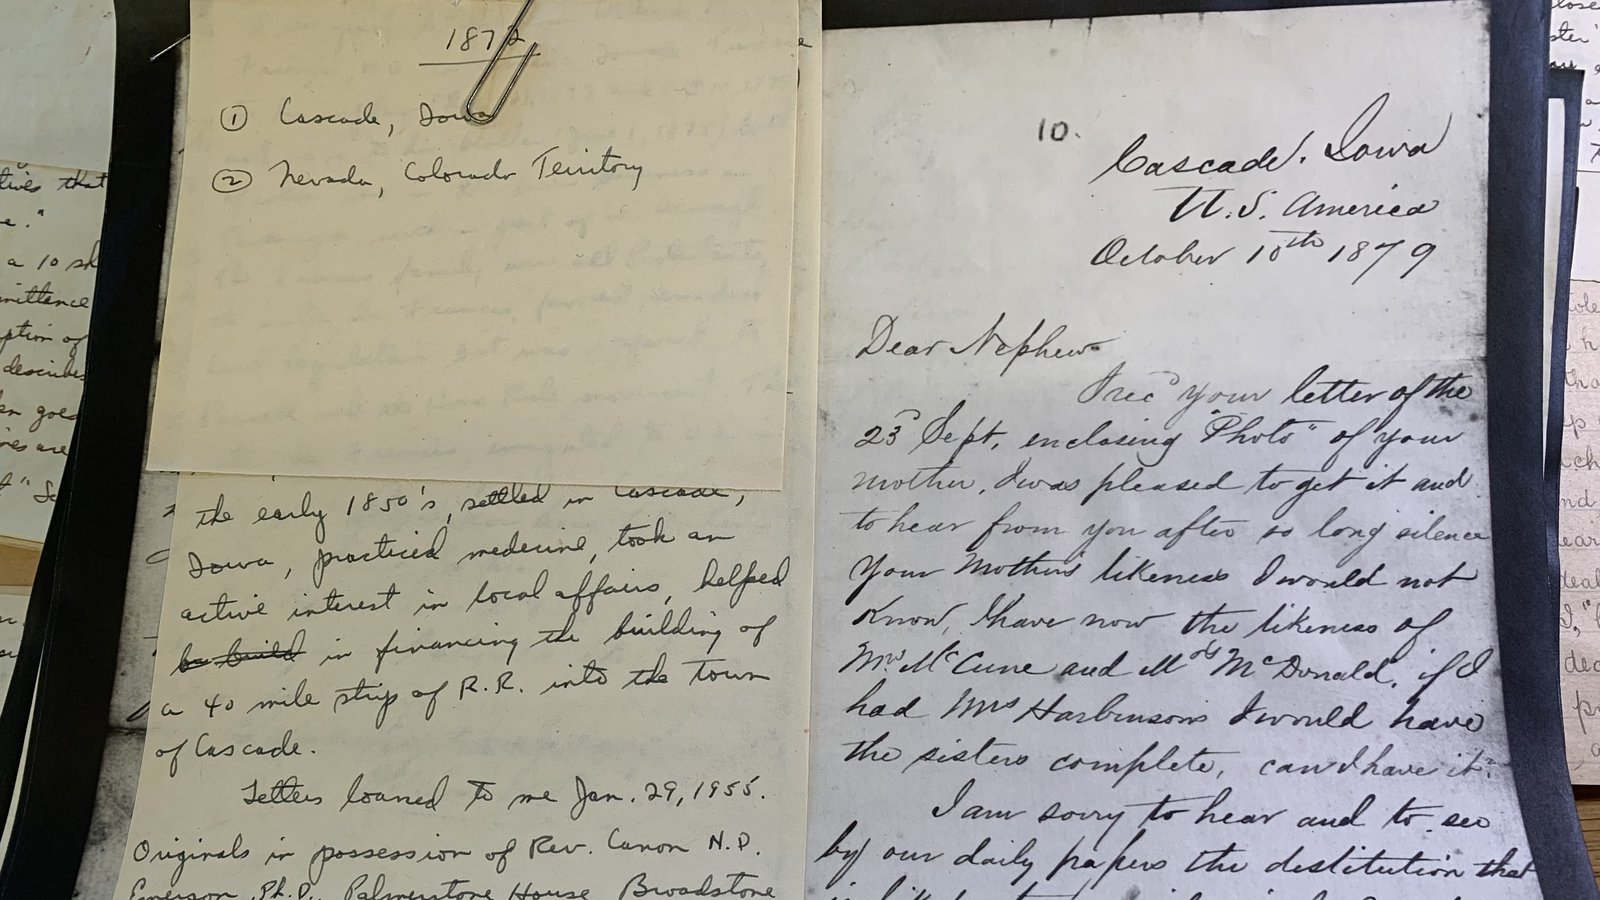 1872
① Cascade, Iowa
② Nevada, Colorado Territory
the early 1850's, settled in Cascade,
Iowa, practiced medicine, took an
active interest in local affairs, helped
in financing the building of
a 40 mile strip of R.R. into the town
of Cascade.
Letters loaned to me Jan. 29, 1955.
Originals in possession of Rev. Canon N.D.
Emerson, Ph.D., Palmerstone House Broadstone
10.
Cascade. Iowa
U.S. America
October 10th 1879
Dear Nephew
I recd your letter of the
23d Sept, enclosing "Photo" of your
mother, I was pleased to get it and
to hear from you after so long silence
Your Mothers likeness I would not
know, I have now the likeness of
Mrs McCune and Mrs McDonald, if I
had Mrs Harbinsons I would have
the sisters complete, can I have it?
I am sorry to hear and to see
by our daily papers the destitution that
tives that
e."
a 10 sh
mittance
ption of
describes
goes
are